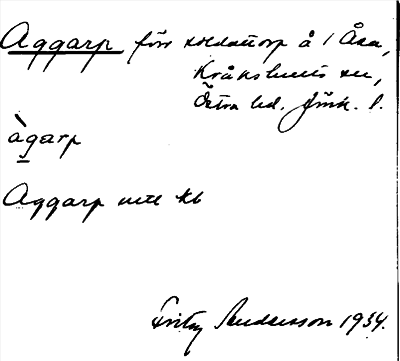 Aggarp förr soldattorp å 1 Åsa,
Kråkshults sn,
Östra hd. Jönk. l.
àgarp
Aggarp
Kb
Fritz Andersson 1934.